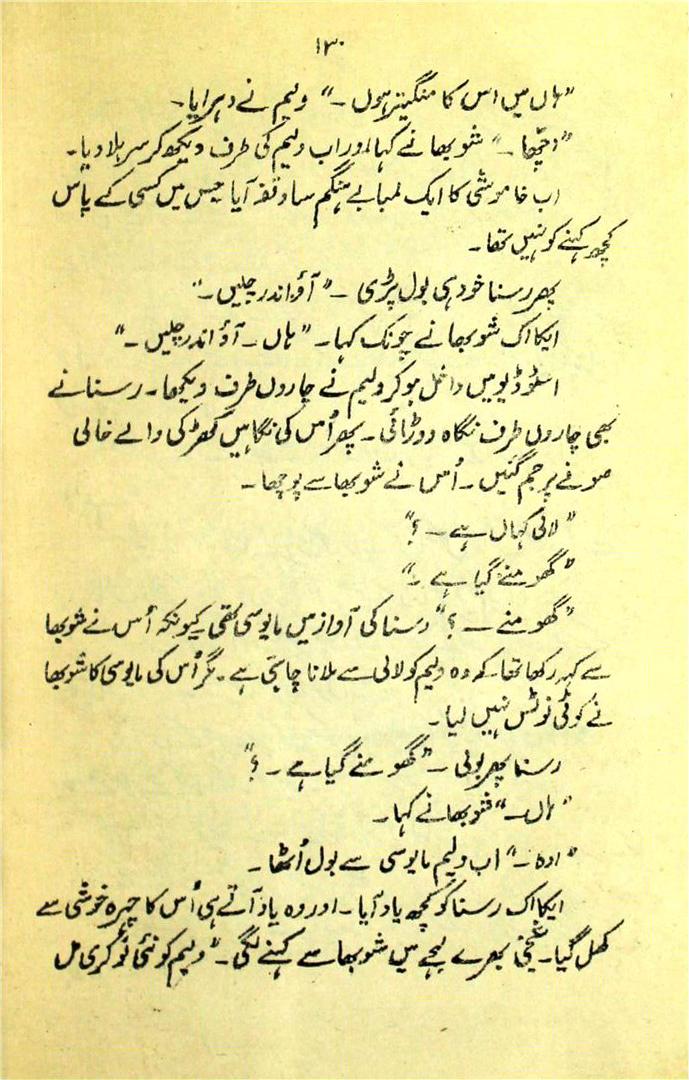 ۱۳۰
"ہاں میں اس کا منگیتر ہوں ۔" ولیم نے دہرایا۔
"اچھا ۔" شوبھا نے کہا اور اب ولیم کی طرف دیکھ کر سر ہلا دیا۔
اب خاموشی کا ایک لمبا بے ہنگم سا وقفہ آیا جس میں کسی کے پاس
کچھ کہنے کو نہیں تھا۔
پھر رسنا خود ہی بول پڑی ۔ "آؤ اندر چلیں ۔"
ایکا اک شوبھا نے چونک کہا۔ "ہاں ۔ آؤ اندر چلیں ۔"
اسٹوڈیو میں داخل ہو کر ولیم نے چاروں طرف دیکھا۔ رسنا نے
بھی چاروں طرف نگاہ دوڑائی ۔ پھر اُس کی نگاہیں کھڑکی والے خالی
صوفے پر جم گئیں ۔ اُس نے شوبھا سے پوچھا ۔
"لالی کہاں ہے ۔ ؟"
"گھومنے گیا ہے ۔"
"گھومنے ۔ ؟" رسنا کی آواز میں مایوسی تھی کیونکہ اُس نے شوبھا
سے کہہ رکھا تھا ۔ کہ وہ ولیم کو لالی سے ملانا چاہتی ہے ۔ مگر اُس کی مایوسی کا شوبھا
نے کوئی نوٹس نہیں لیا ۔
رسنا پھر بولی ۔ "گھومنے گیا ہے ۔ ؟"
"ہاں ۔" شوبھا نے کہا۔
"اوہ ۔" اب ولیم مایوسی سے بول اُٹھا ۔
ایکا اک رسنا کو کچھ یاد آیا ۔ اور وہ یاد آتے ہی اُس کا چہرہ خوشی سے
کھل گیا ۔ بھرے لہجے میں شوبھا سے کہنے لگی ۔ "ولیم کو نئی نوکری مل